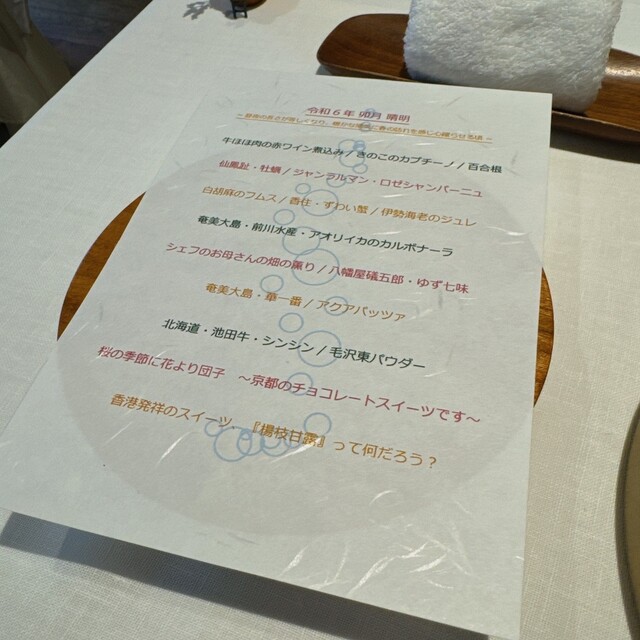 令和６年 卯月 晴明
牛ほほ肉の赤ワイン煮込み / きのこのカプチーノ / 百合根
仙鳳趾・牡蠣 / ジャンラルマン・ロゼシャンパーニュ
白胡麻のフムス / 香住・ずわい蟹 / 伊勢海老のジュレ
奄美大島・前川水産・アオリイカのカルボナーラ
シェフのお母さんの畑の薫り / 八幡屋礒五郎・ゆず七味
奄美大島・華一番 / アクアパッツァ
北海道・池田牛・シンシン / 毛沢東パウダー
桜の季節に花より団子　～京都のチョコレートスイーツです～
香港発祥のスイーツ、『楊枝甘露』って何だろう？